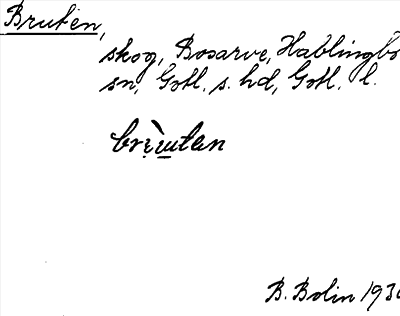 Bruten,
skog, Bosarve, Hablingbo
sn, Gotl. s. hd, Gotl. l.
B. Bolin 193